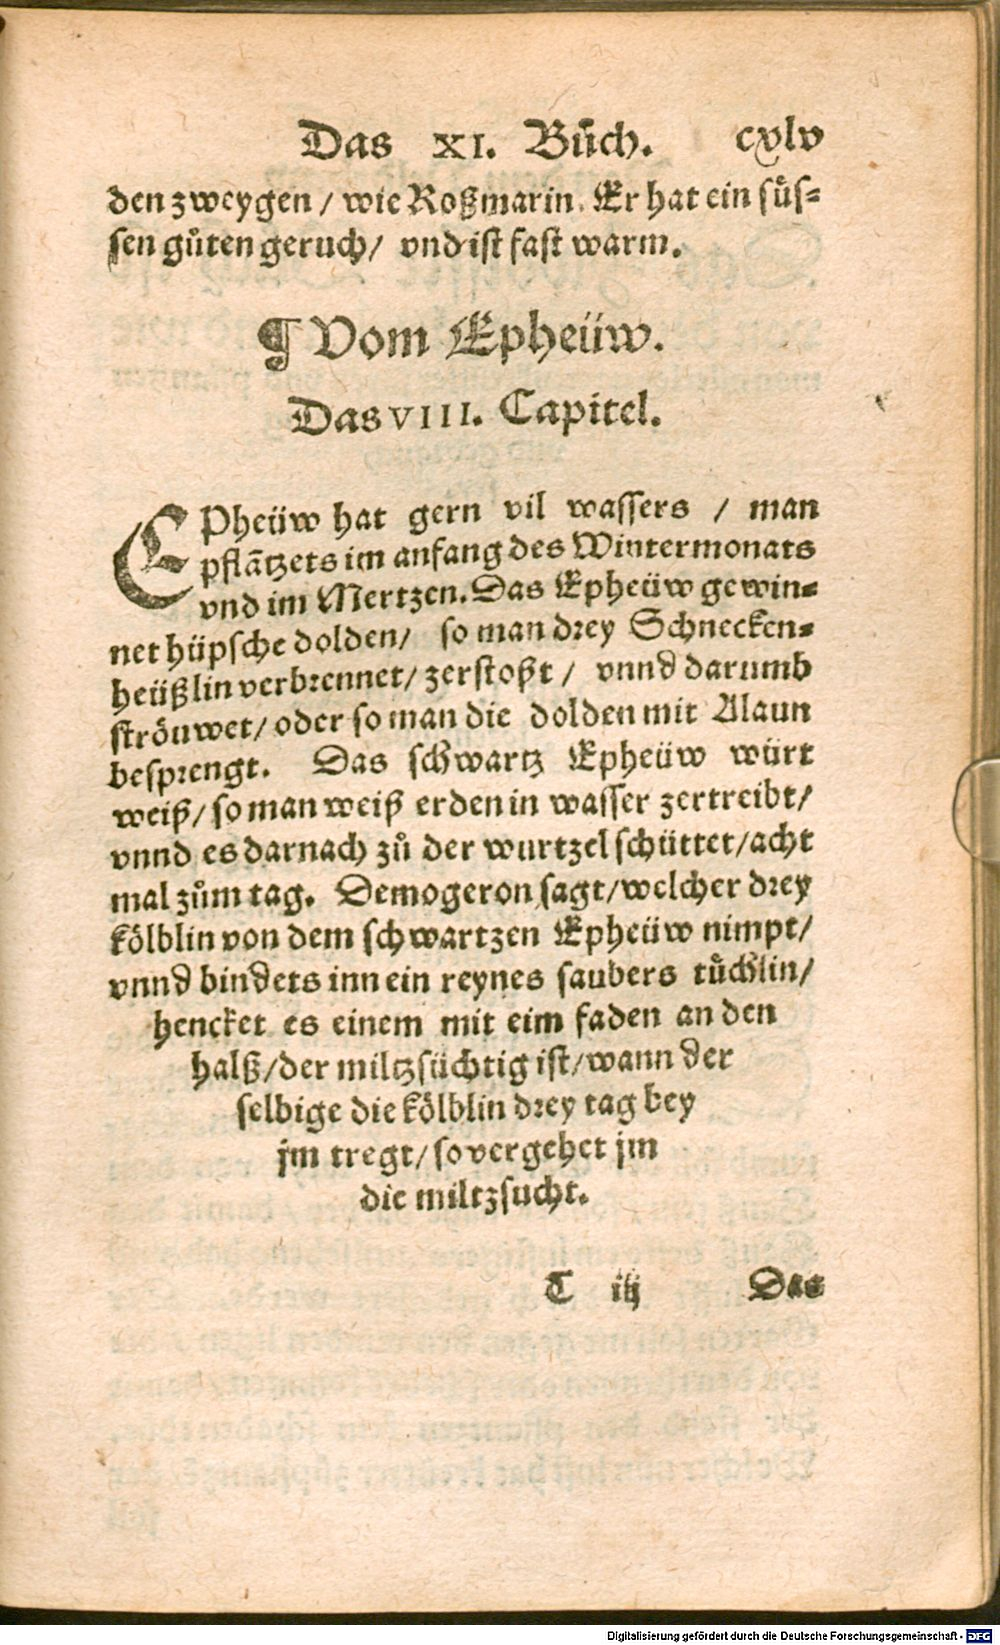 Das XI. Bůch. cxlv
den zweygen / wie Roßmarin. Er hat ein süs-
sen gůten geruch / vnd ist fast warm.
¶ Vom Epheüw.
Das VIII. Capitel.
EPheüw hat gern vil wassers / man
pflãtzets im anfang des Wintermonats
vnd im Mertzen. Das Epheüw gewin-
net hüpsche dolden / so man drey Schnecken-
heüßlin verbrennet / zerstoßt / vnnd darumb
ströuwet / oder so man die dolden mit Alaun
besprengt. Das schwartz Epheüw würt
weiß / so man weiß erden in wasser zertreibt /
vnnd es darnach zů der wurtzel schüttet / acht
mal zům tag. Demogeron sagt / welcher drey
kölblin von dem schwartzen Epheüw nimpt /
vnnd bindets inn ein reynes saubers tůchlin /
hencket es einem mit eim faden an den
halß / der miltzsüchtig ist / wann der
selbige die kölblin drey tag bey
jm tregt / so vergehet jm
die miltzsucht.
T iij Das
Digitalisierung gefördert durch die Deutsche Forschungsgemeinschaft - DFG